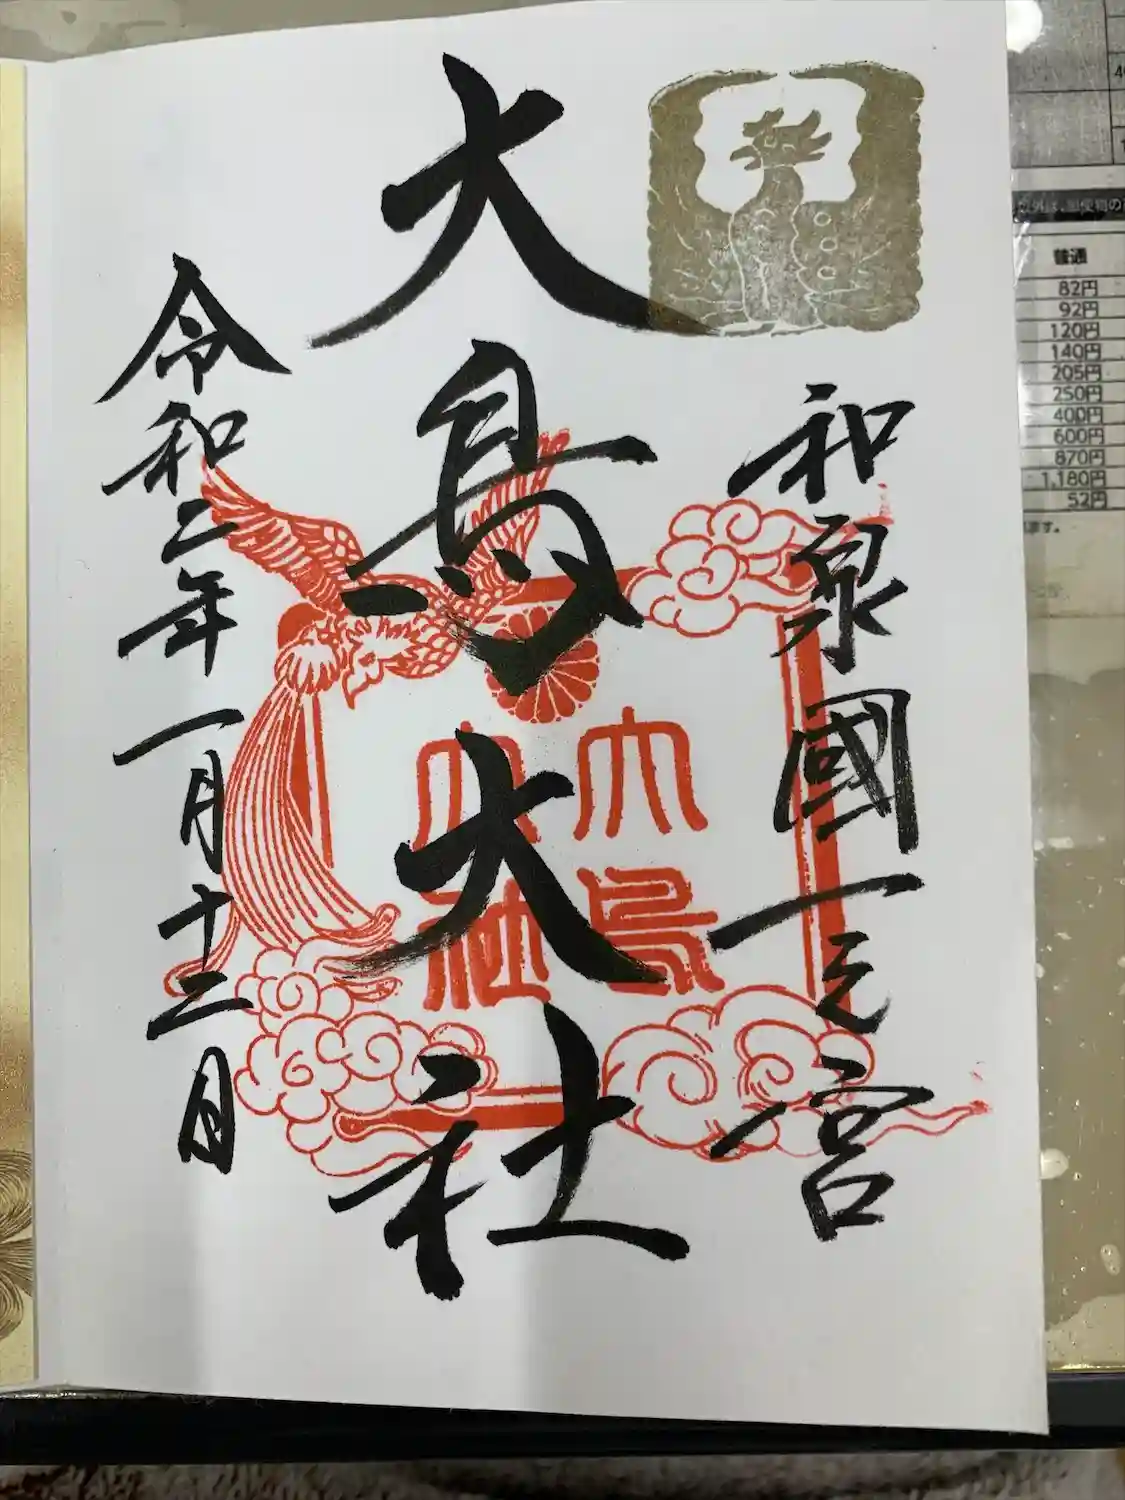 和泉國一之宮
大鳥大社
大鳥大社
令和二年一月十二日
普通
82円
92円
120円
140円
205円
250円
400円
600円
870円
1,180円
52円
ます。